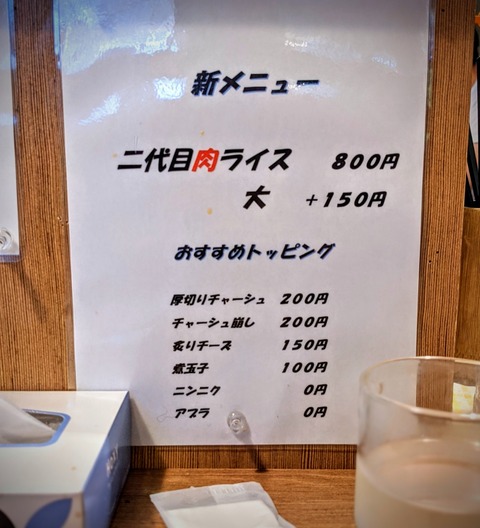 新メニュー
二代目肉ライス 800円
大 +150円
おすすめトッピング
厚切りチャーシュ 200円
チャーシュ崩し 200円
炙りチーズ 150円
煮玉子 100円
ニンニク 0円
アブラ 0円